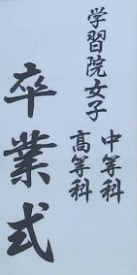 学習院女子
中等科
高等科
卒業式